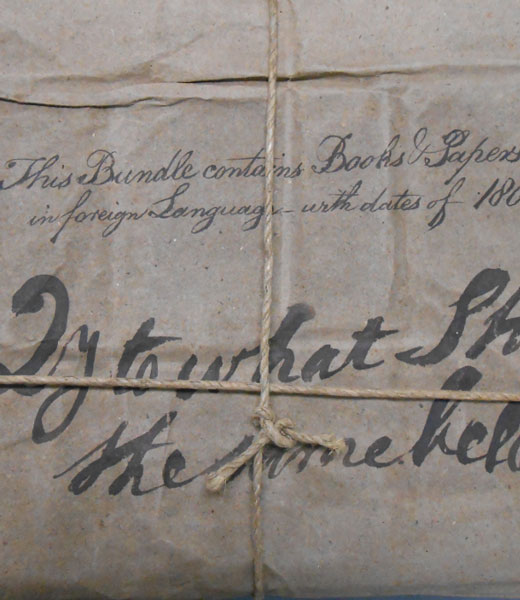 This Bundle contains Books & Papers
in foreign Language – with dates of 180
Qy to what Sh
the same belo